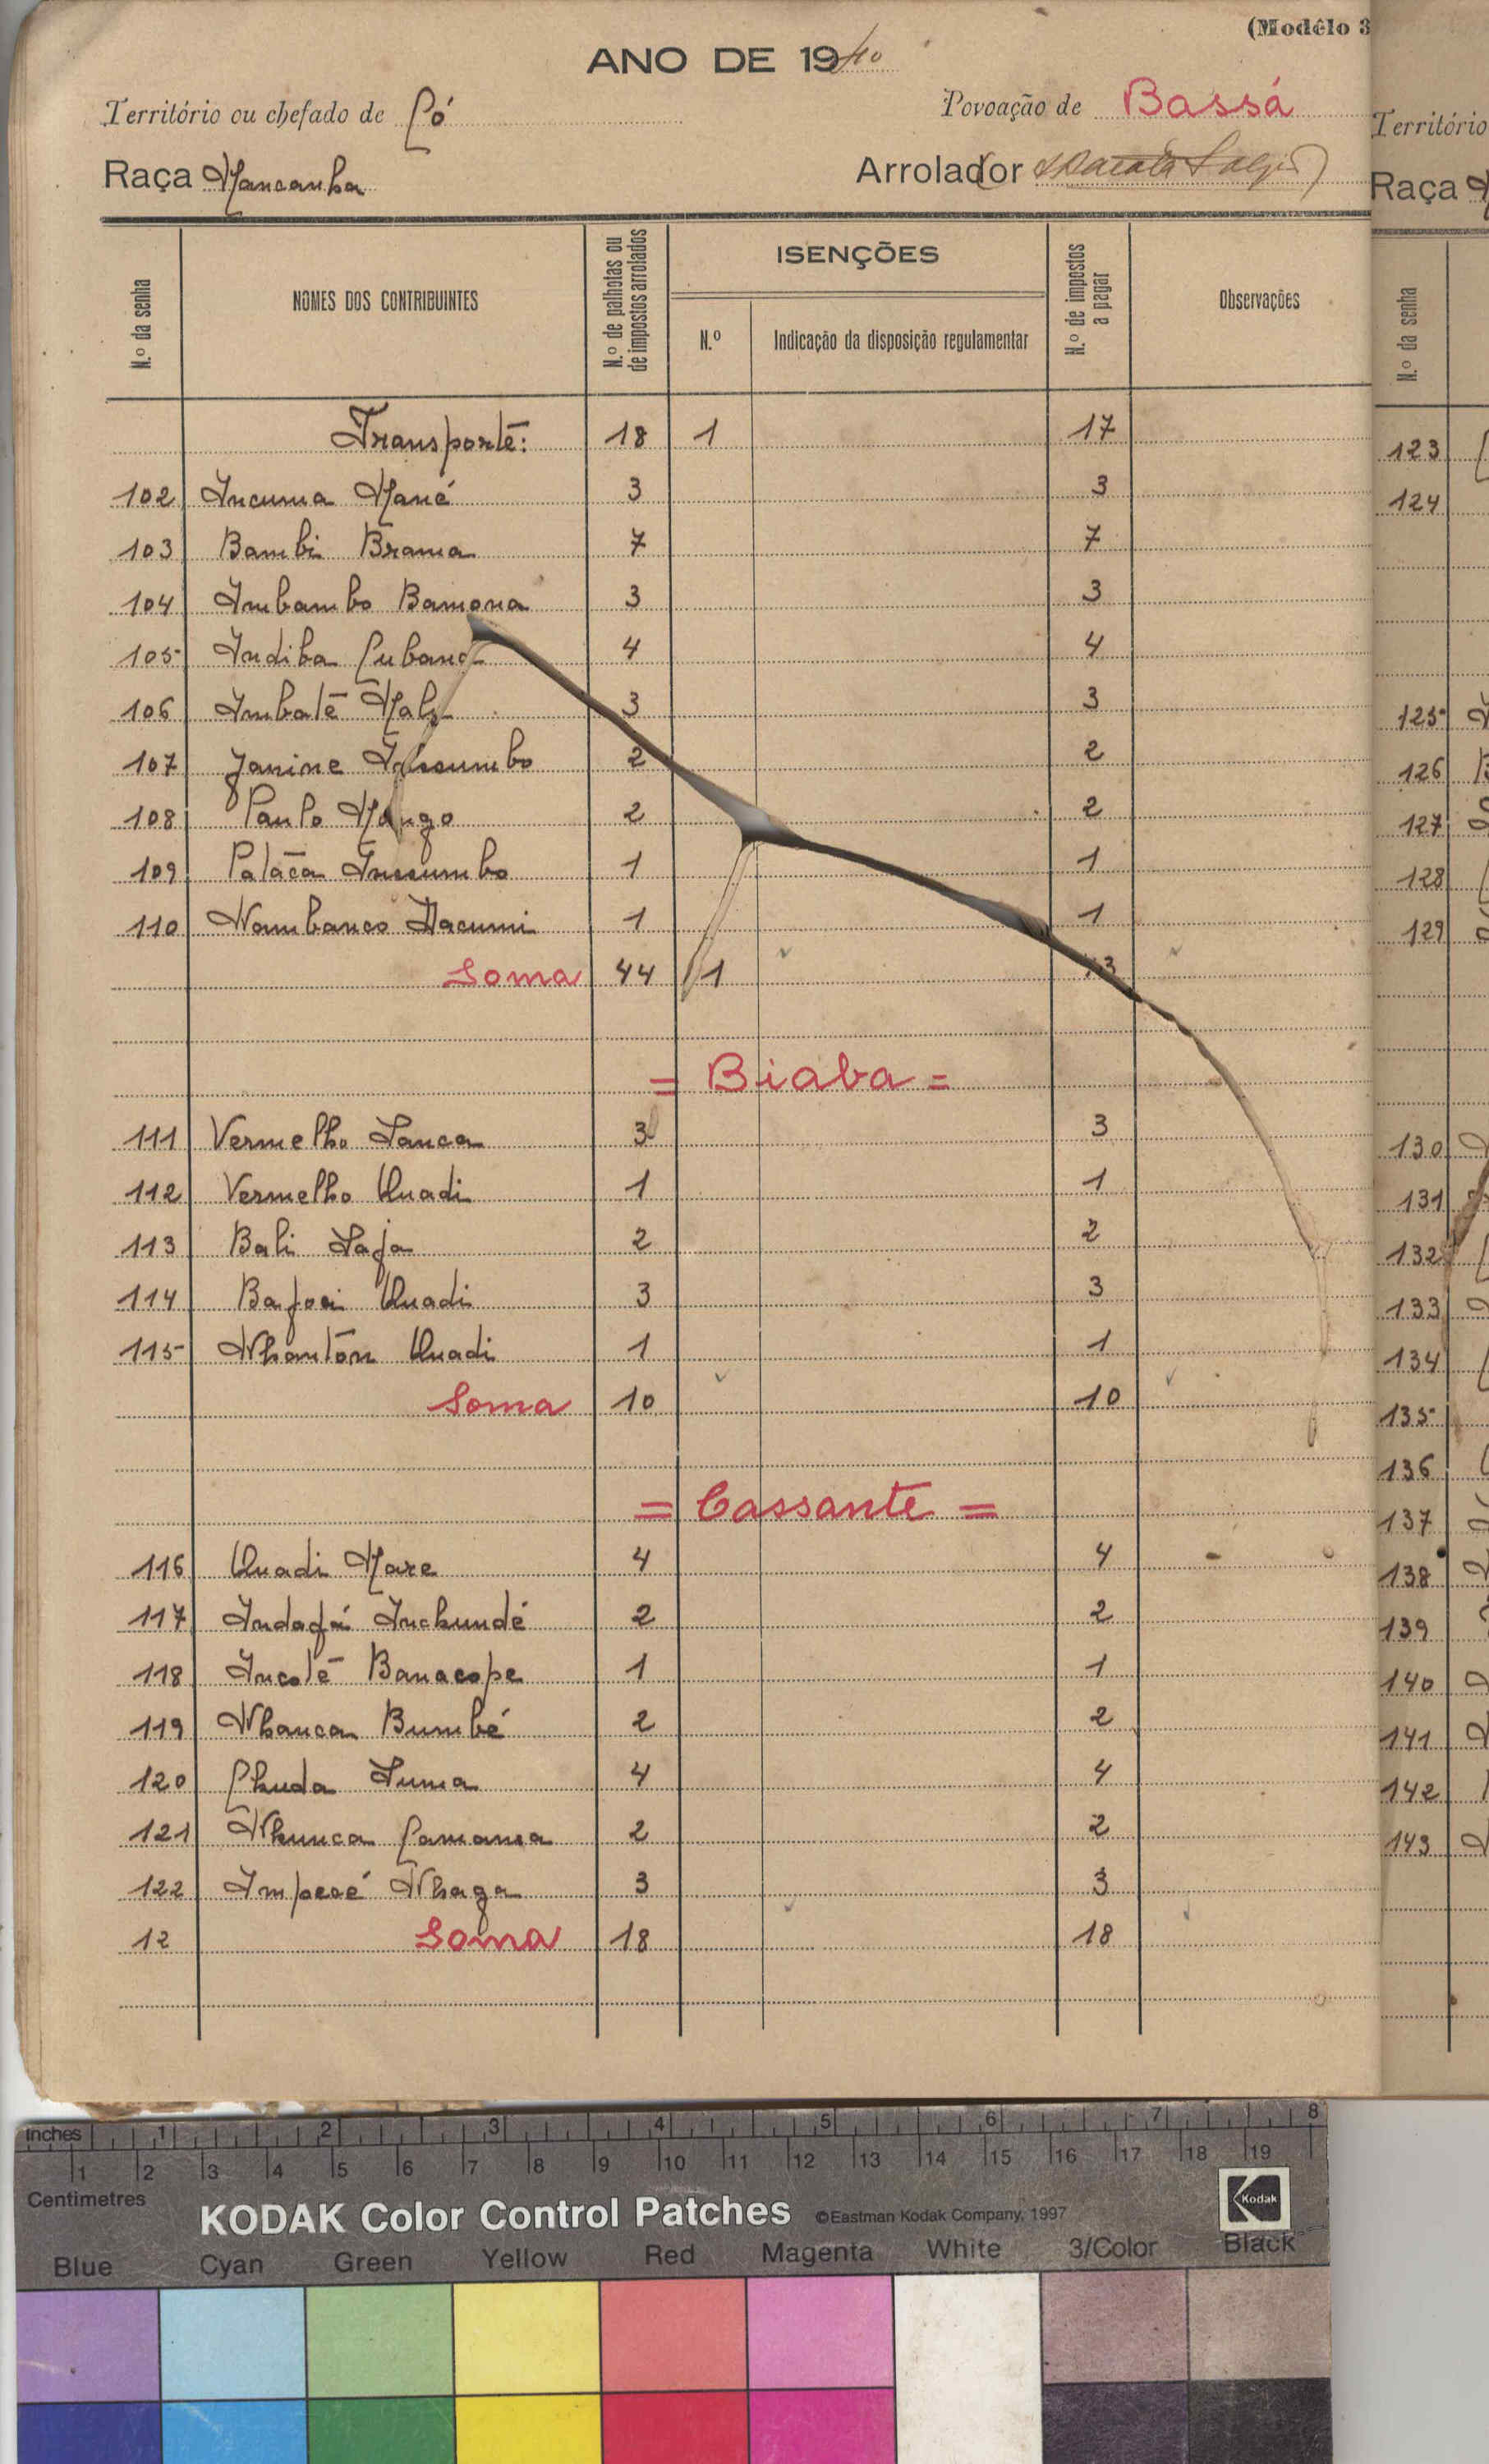 (Modêlo 3
ANO DE 1940
Território ou chefado de Có
Povoação de Bassá
Raça Mancanha
Arrolador
N.º da senha
NOMES DOS CONTRIBUINTES
N.º de palhotas ou de impostos arrolados
ISENÇÕES
N.º
Indicação da disposição regulamentar
N.º de impostos a pagar
Observações
Transporte: 18 1 17
102 Incuma Mané 3 3
103 Bambi Brama 7 7
104 Imbambo Bamona 3 3
105 Indiba Cubana 4 4
106 Imbatê 3 3
107 Janine 2 2
108 Paulo Mango 2 2
109 Palãca Inssumbo 1 1
110 Nambanco Dacumi 1 1
Soma 44 1 43
= Biaba =
111 Vermelho Sanca 3 3
112 Vermelho Quadi 1 1
113 Bali Saja 2 2
114 Quadi 3 3
115 Nhantôn Quadi 1 1
Soma 10 10
= Cassante =
116 Quadi Mare 4 4
117 Indafá Inchundé 2 2
118 Incolê Banacope 1 1
119 Nhanca Bumbé 2 2
120 Chuda Suma 4 4
121 Nhunca Camansa 2 2
122 Nhaga 3 3
12 Soma 18 18
Território
Raça
N.º da senha
123
124
125
126
127
128
129
130
131
132
133
134
135
136
137
138
139
140
141
142
143
Inches 1 2 3 4 5 6 7 8
1 2 3 4 5 6 7 8 9 10 11 12 13 14 15 16 17 18 19
Centimetres
KODAK Color Control Patches ©Eastman Kodak Company, 1997 Kodak
Blue Cyan Green Yellow Red Magenta White 3/Color Black